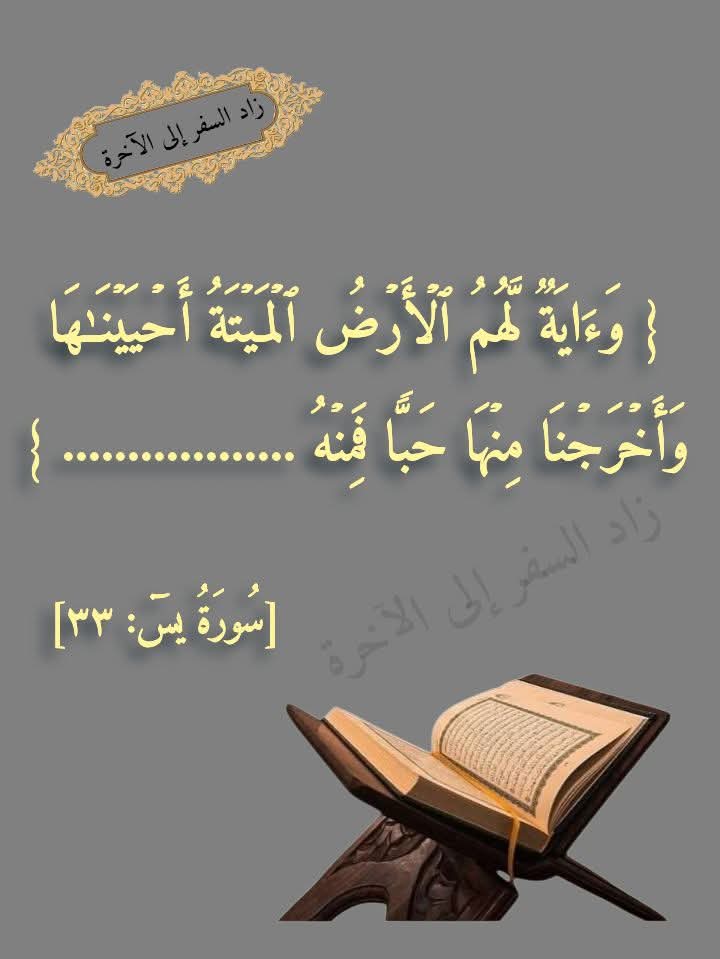 زاد السفر إلى الآخرة
{ وَءَايَةٌ لَّهُمُ ٱلْأَرْضُ ٱلْمَيْتَةُ أَحْيَيْنَـٰهَا
وَأَخْرَجْنَا مِنْهَا حَبًّا فَمِنْهُ .................. }
زاد السفر إلى الآخرة
[سُورَةُ يسٓ: ٣٣]